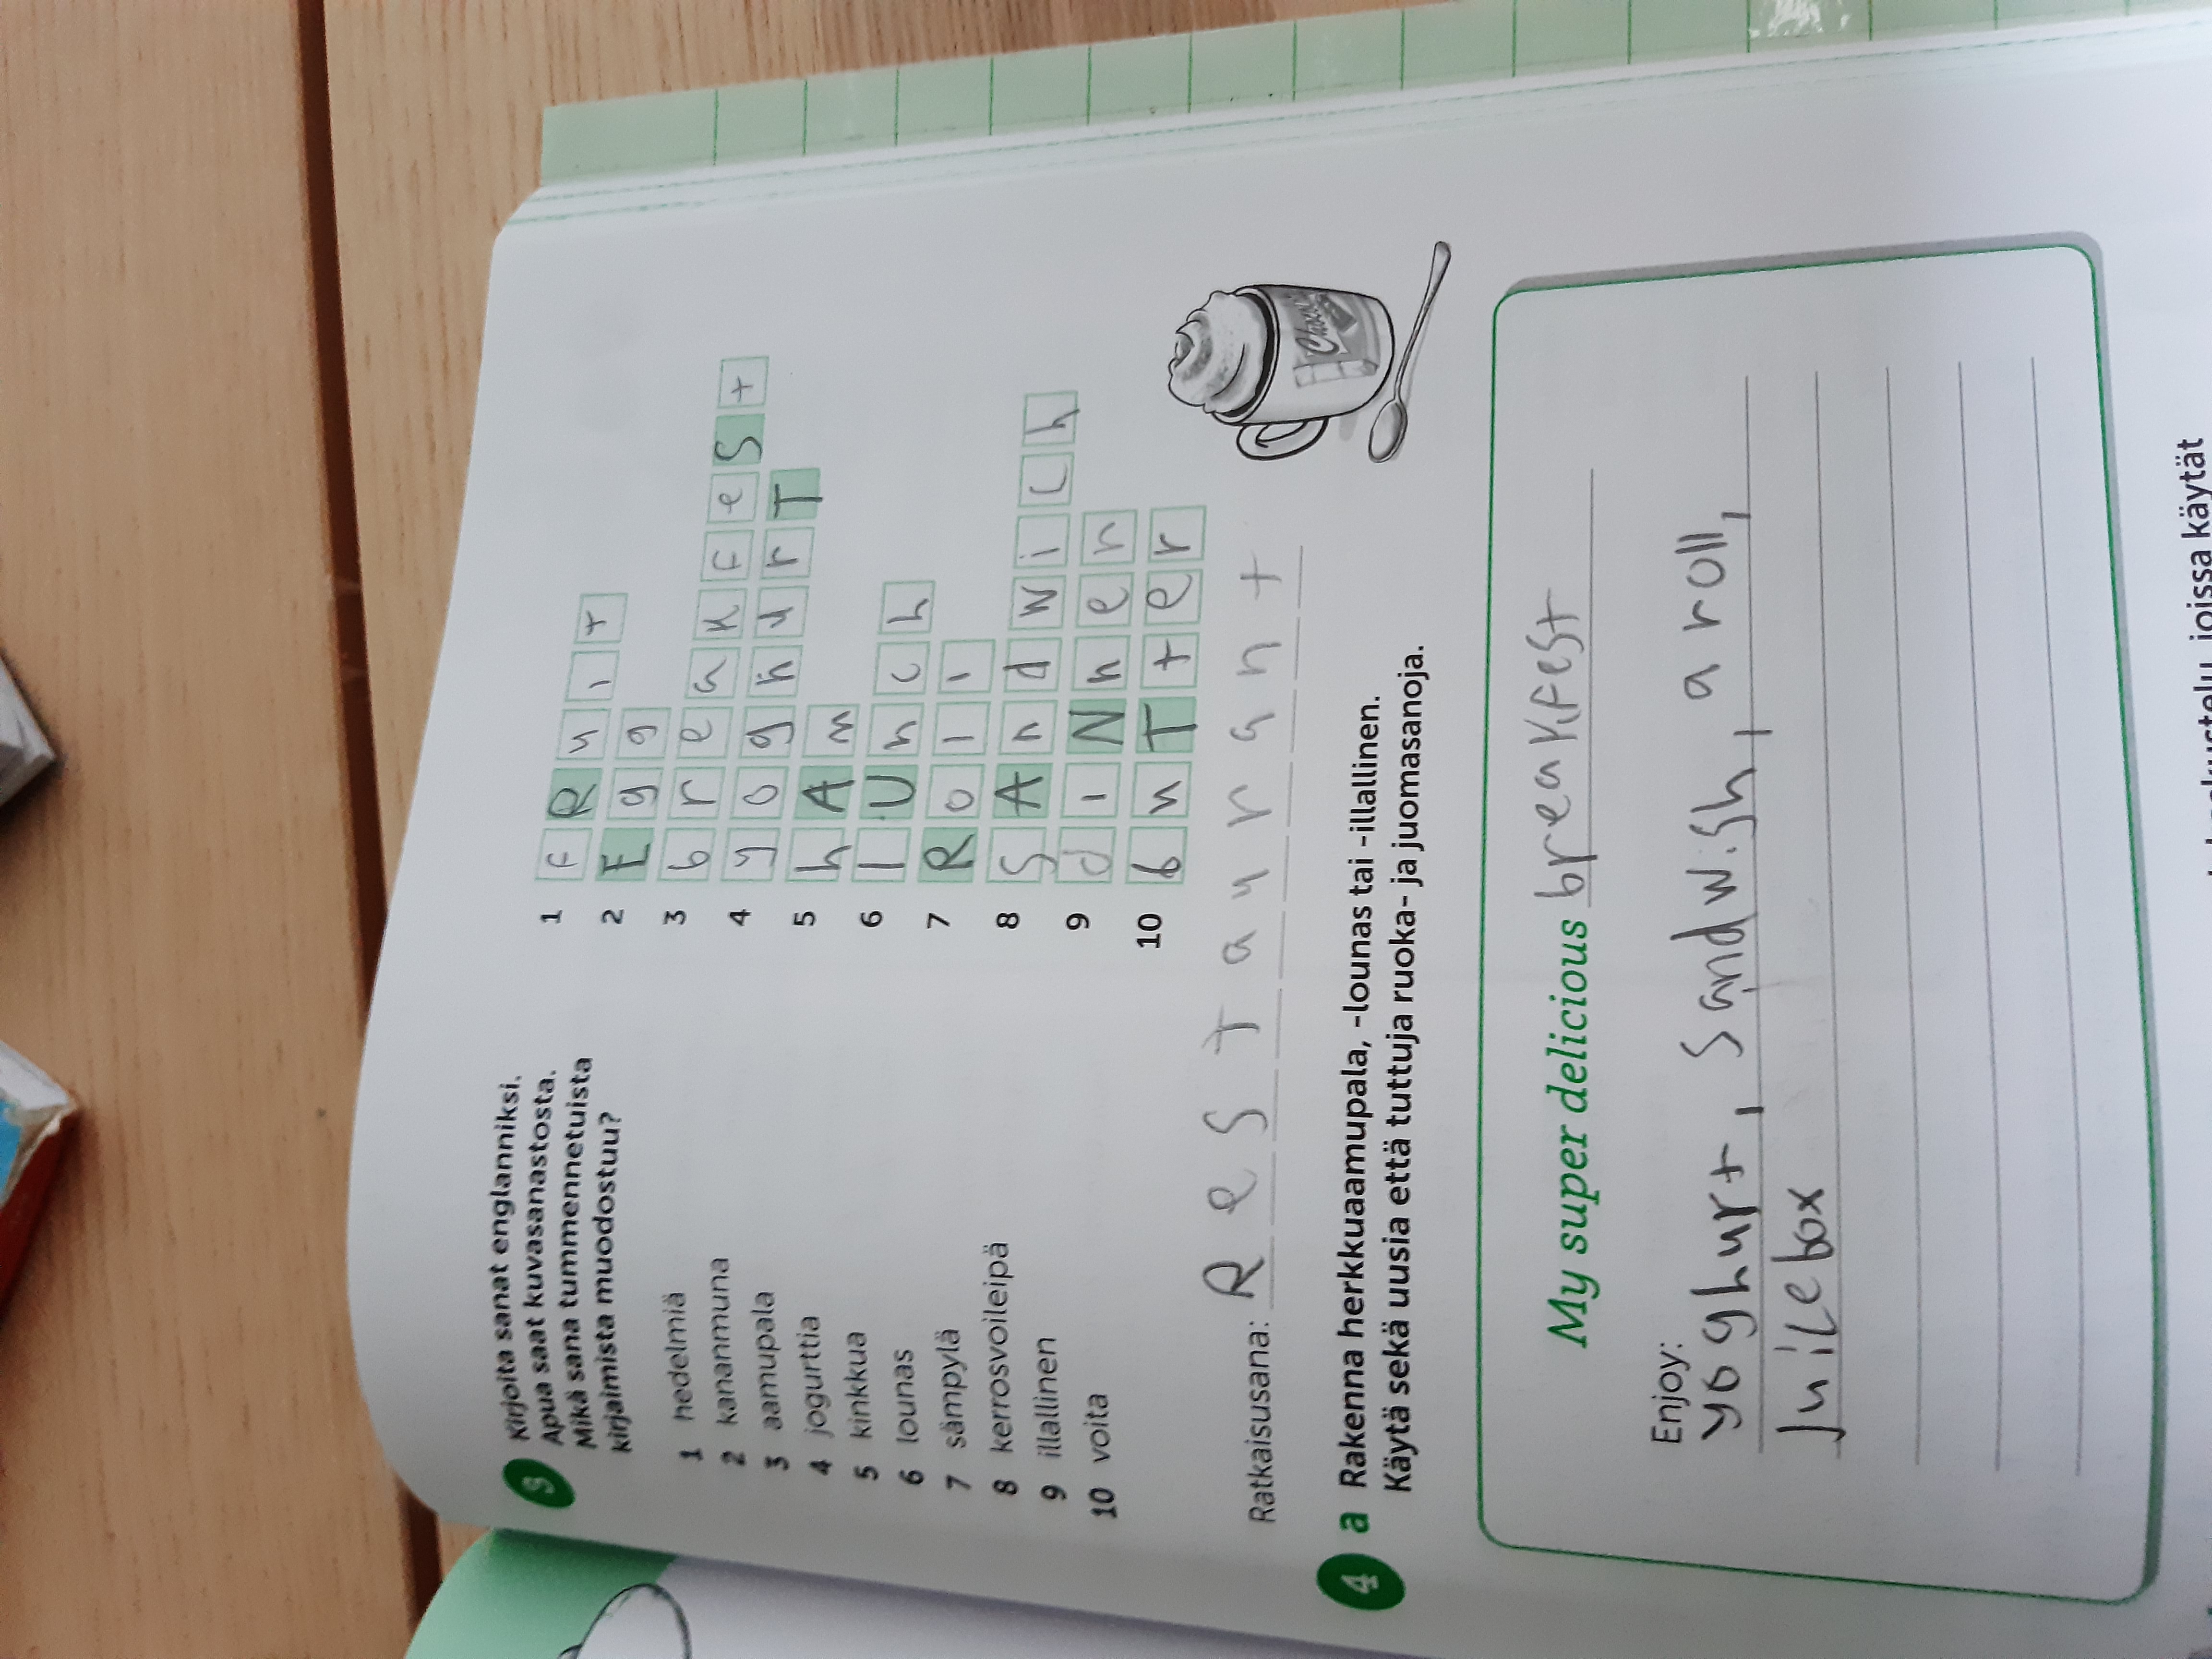 3 Kirjoita sanat englanniksi.
Apua saat kuvasanastosta.
Mikä sana tummennetuista
kirjaimista muodostuu?
1 hedelmiä
2 kananmuna
3 aamupala
4 jogurttia
5 kinkkua
6 lounas
7 sämpylä
8 kerrosvoileipä
9 illallinen
10 voita
1 fRuit
2 Egg
3 breakfeSt
4 yoghurT
5 hAm
6 lUnch
7 Roll
8 SAndwich
9 diNnen
10 buTter
Ratkaisusana: ReSTaurant
4 a Rakenna herkkuaamupala, -lounas tai -illallinen.
Käytä sekä uusia että tuttuja ruoka- ja juomasanoja.
My super delicious breakfest
Enjoy:
yoghurt, sandwish, a roll,
Juicebox
joissa käytät